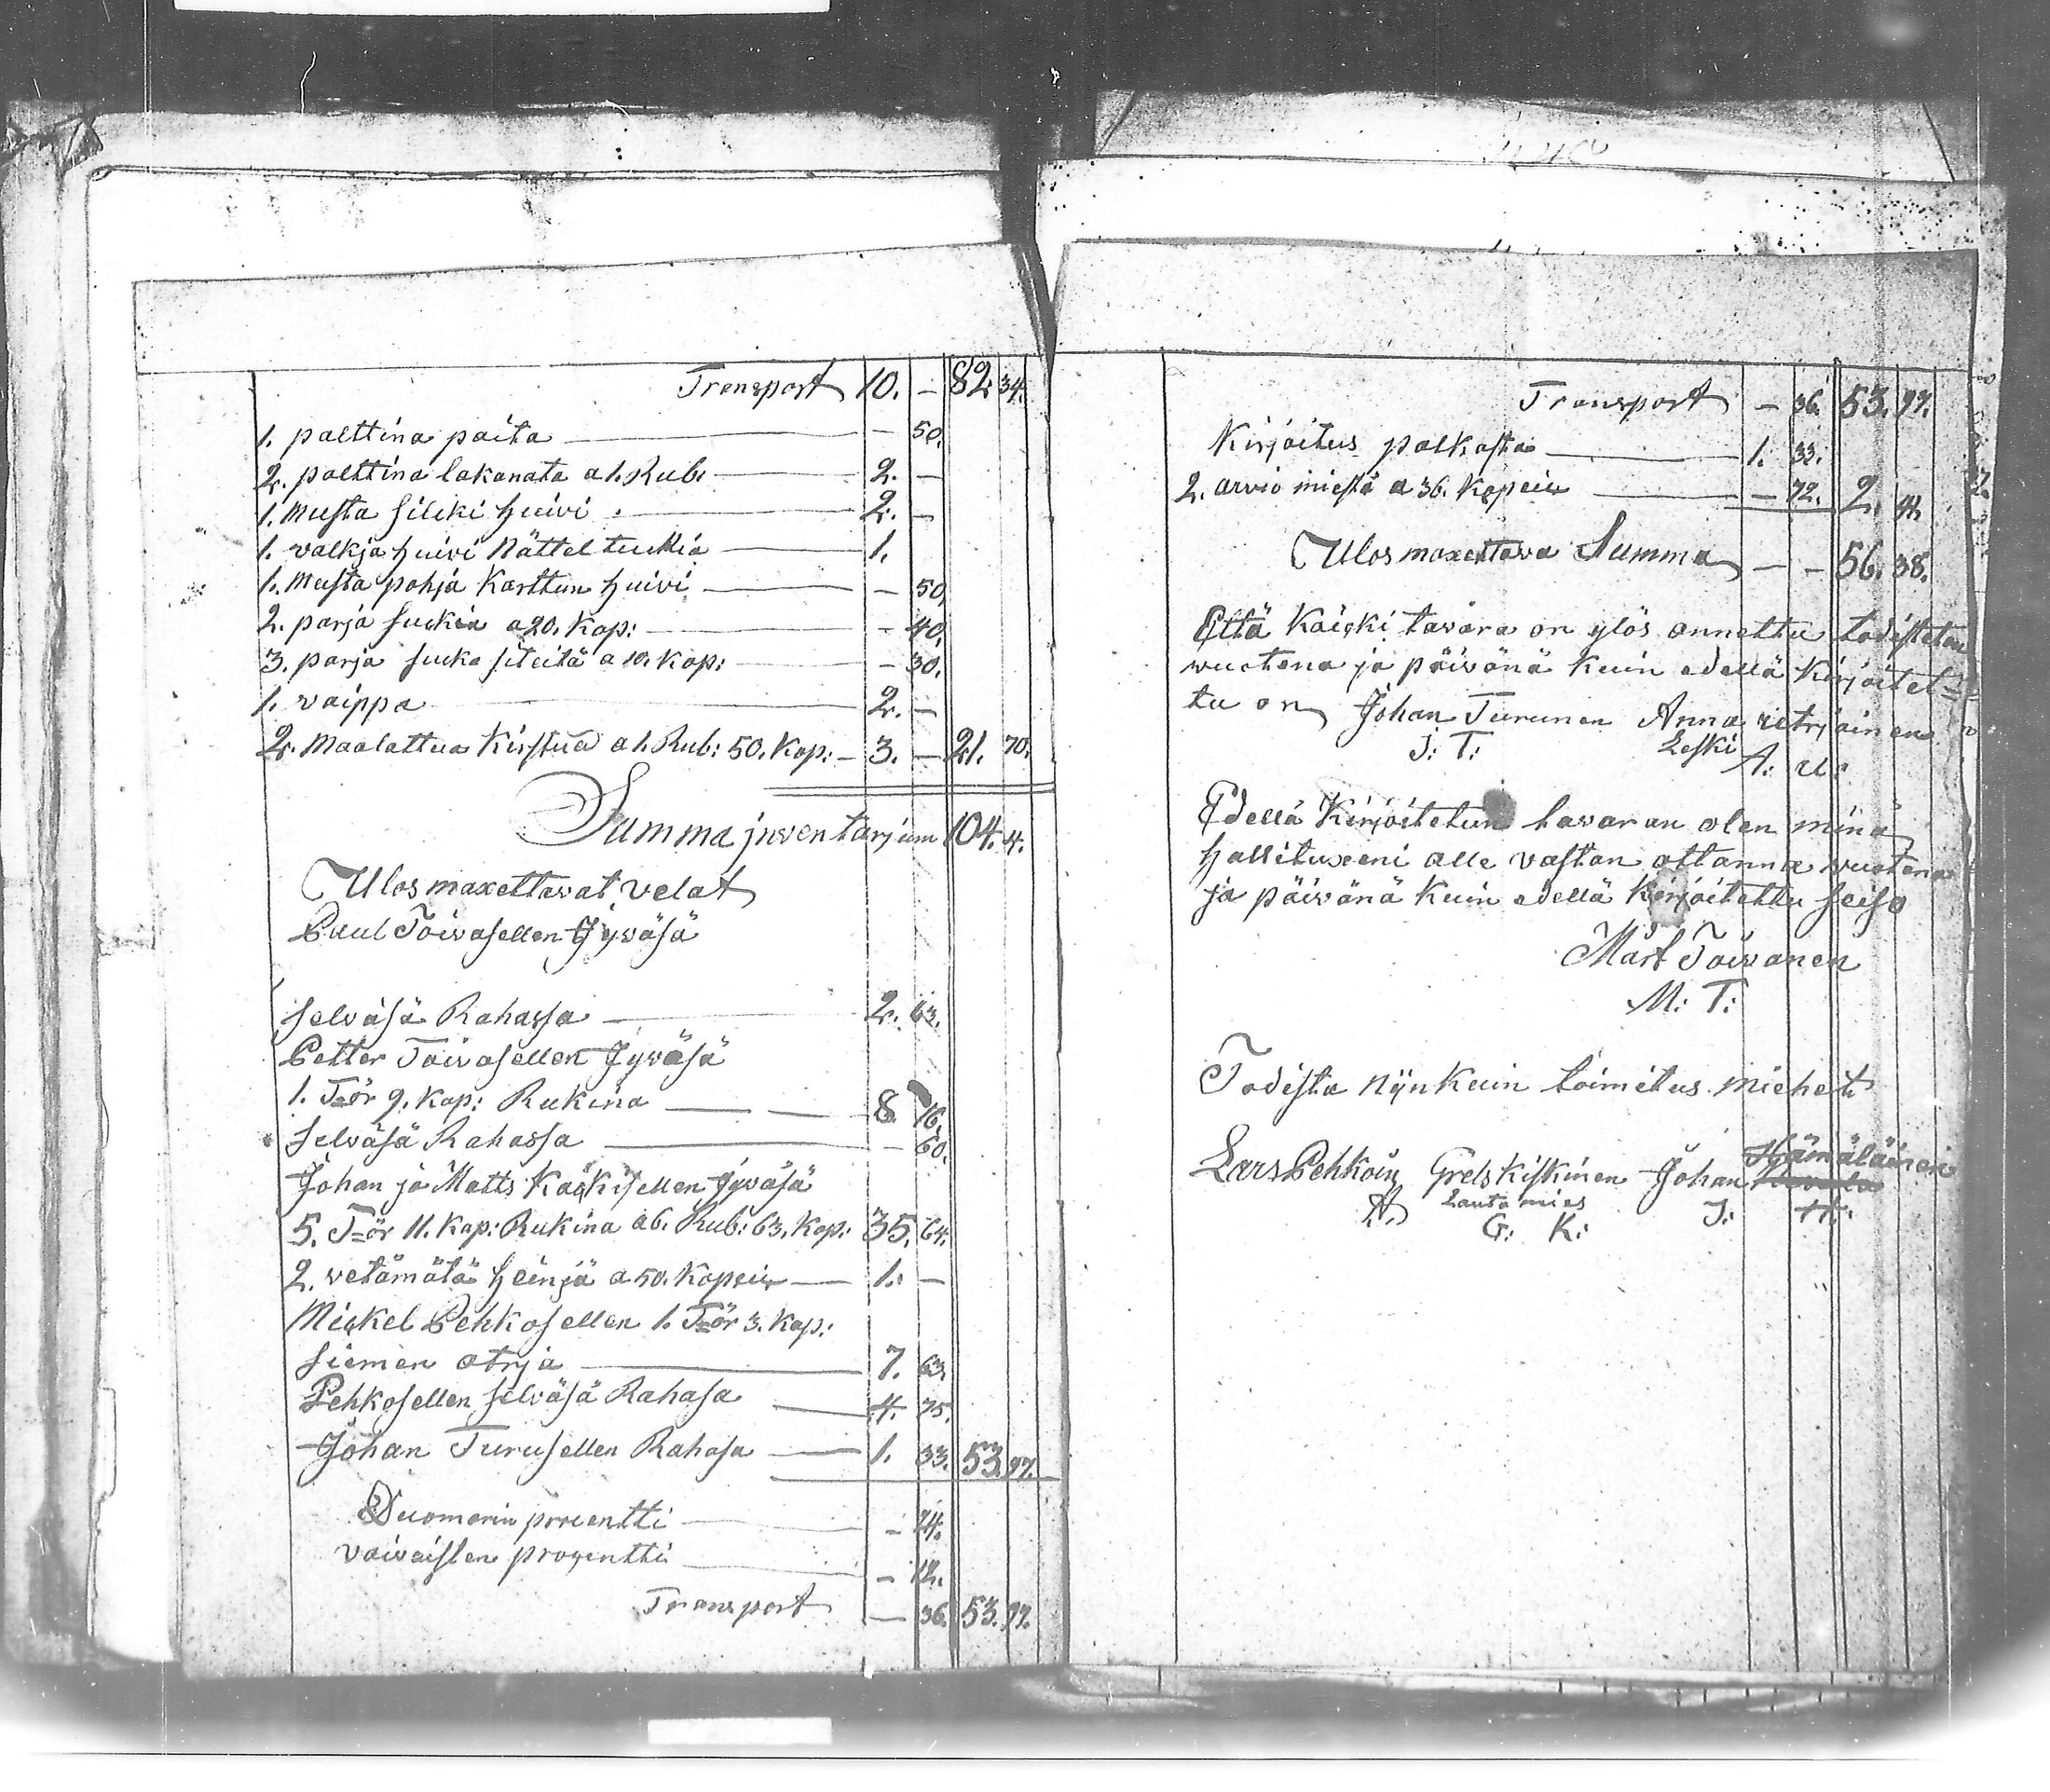 Transport 10. – 82 34.
1. palttina paita – 50.
2. palttina lakanata a 1. Rub: 2. –
1. Musta silcki huivi 2. –
1. valkja huivi Nättel tukkia 1.
1. Musta pohja Karttun huivi – 50.
2. parja suckia a 20. Kop: – 40.
3. parja sucka siteitä a 10. Kop: – 30.
1. vaippa 2. –
2. Maalattua Kirstua a 1. Rub: 50. Kop: – 3. – 21. 70.
Summa jnventarjum 104. 4.
Ulos maxettavat velat
Paul Toivasellen Jyväsä
selväsä Rahassa 2. 63.
Petter Toivasellen Jyväsä
1. T=ör 9. Kap: Rukina 8 76.
selväsä Rahassa – 60.
Johan ja Matts Käckisellen Jyväsä
5. T=ör 11. Kap: Rukina a 6. Rub: 63. Kop: 35. 64.
2. vetämätä heinjä a 50. Kopeic 1. –
Mickel Pehkosellen 1. T=ör 3. Kap:
siemen otrja 7. 63.
Pehkosellen selväsä Rahasa 4. 75.
Johan Turusellen Rahasa 1. 33. 53. 97.
Duomarin procentti – 24.
vaivaisten procentti – 12.
Transport – 36. 53. 97.
Transport – 36. 53. 97.
Kirjoitus palkasta 1. 33.
2. arvio miestä a 36. Kopeic – 72. 2. 41.
Ulos maxettava Summa – – 56. 38.
Että kaicki tavara on ylös annettu todistetan
wuotena ja päivänä kuin edellä kirjoitet=
tu on Johan Turunen Anna
J: T: Leski A:
Edellä Kirjoitetun tavaran olen minä
hallituxeni alle vastan ottanna wuotena
ja päivänä kuin edellä kirjoitettu seiso
Mårt Toivanen
M: T:
Todista nijnkuin toimitus miehet
Hämäläinen
Lars Pehkoin Grels Kiskinen Johan
Lautamies
G: K: J: H: